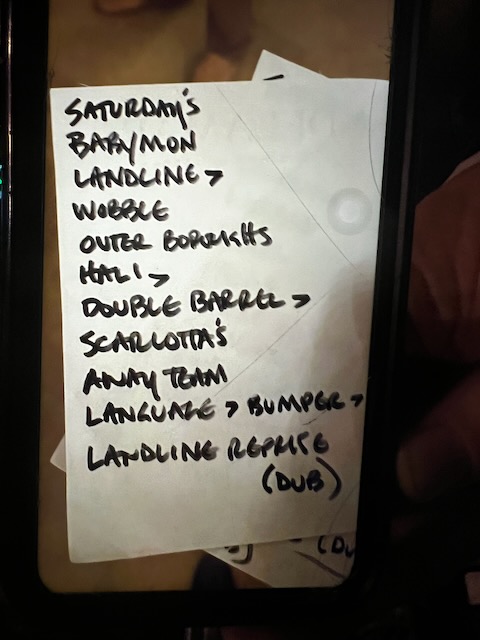 SATURDAY'S
BABYMON
LANDLINE >
WOBBLE
OUTER BORRIGHS
HALI >
DOUBLE BARREL >
SCARLOTTA'S
AWAY TEAM
LANGUAGE > BUMPER >
LANDLINE REPRISE
(DUB)
(DU